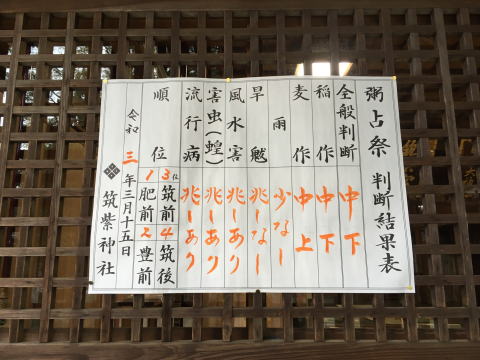 粥占祭 判断結果表
全般判断 中下
稲作 中下
麦作 中上
雨 少なし
旱魃 兆しなし
風水害 兆しあり
害虫(蝗) 兆しあり
流行病 兆しあり
順位 3位 筑前 4 筑後
1 肥前 2 豊前
令和三年三月十五日
筑紫神社